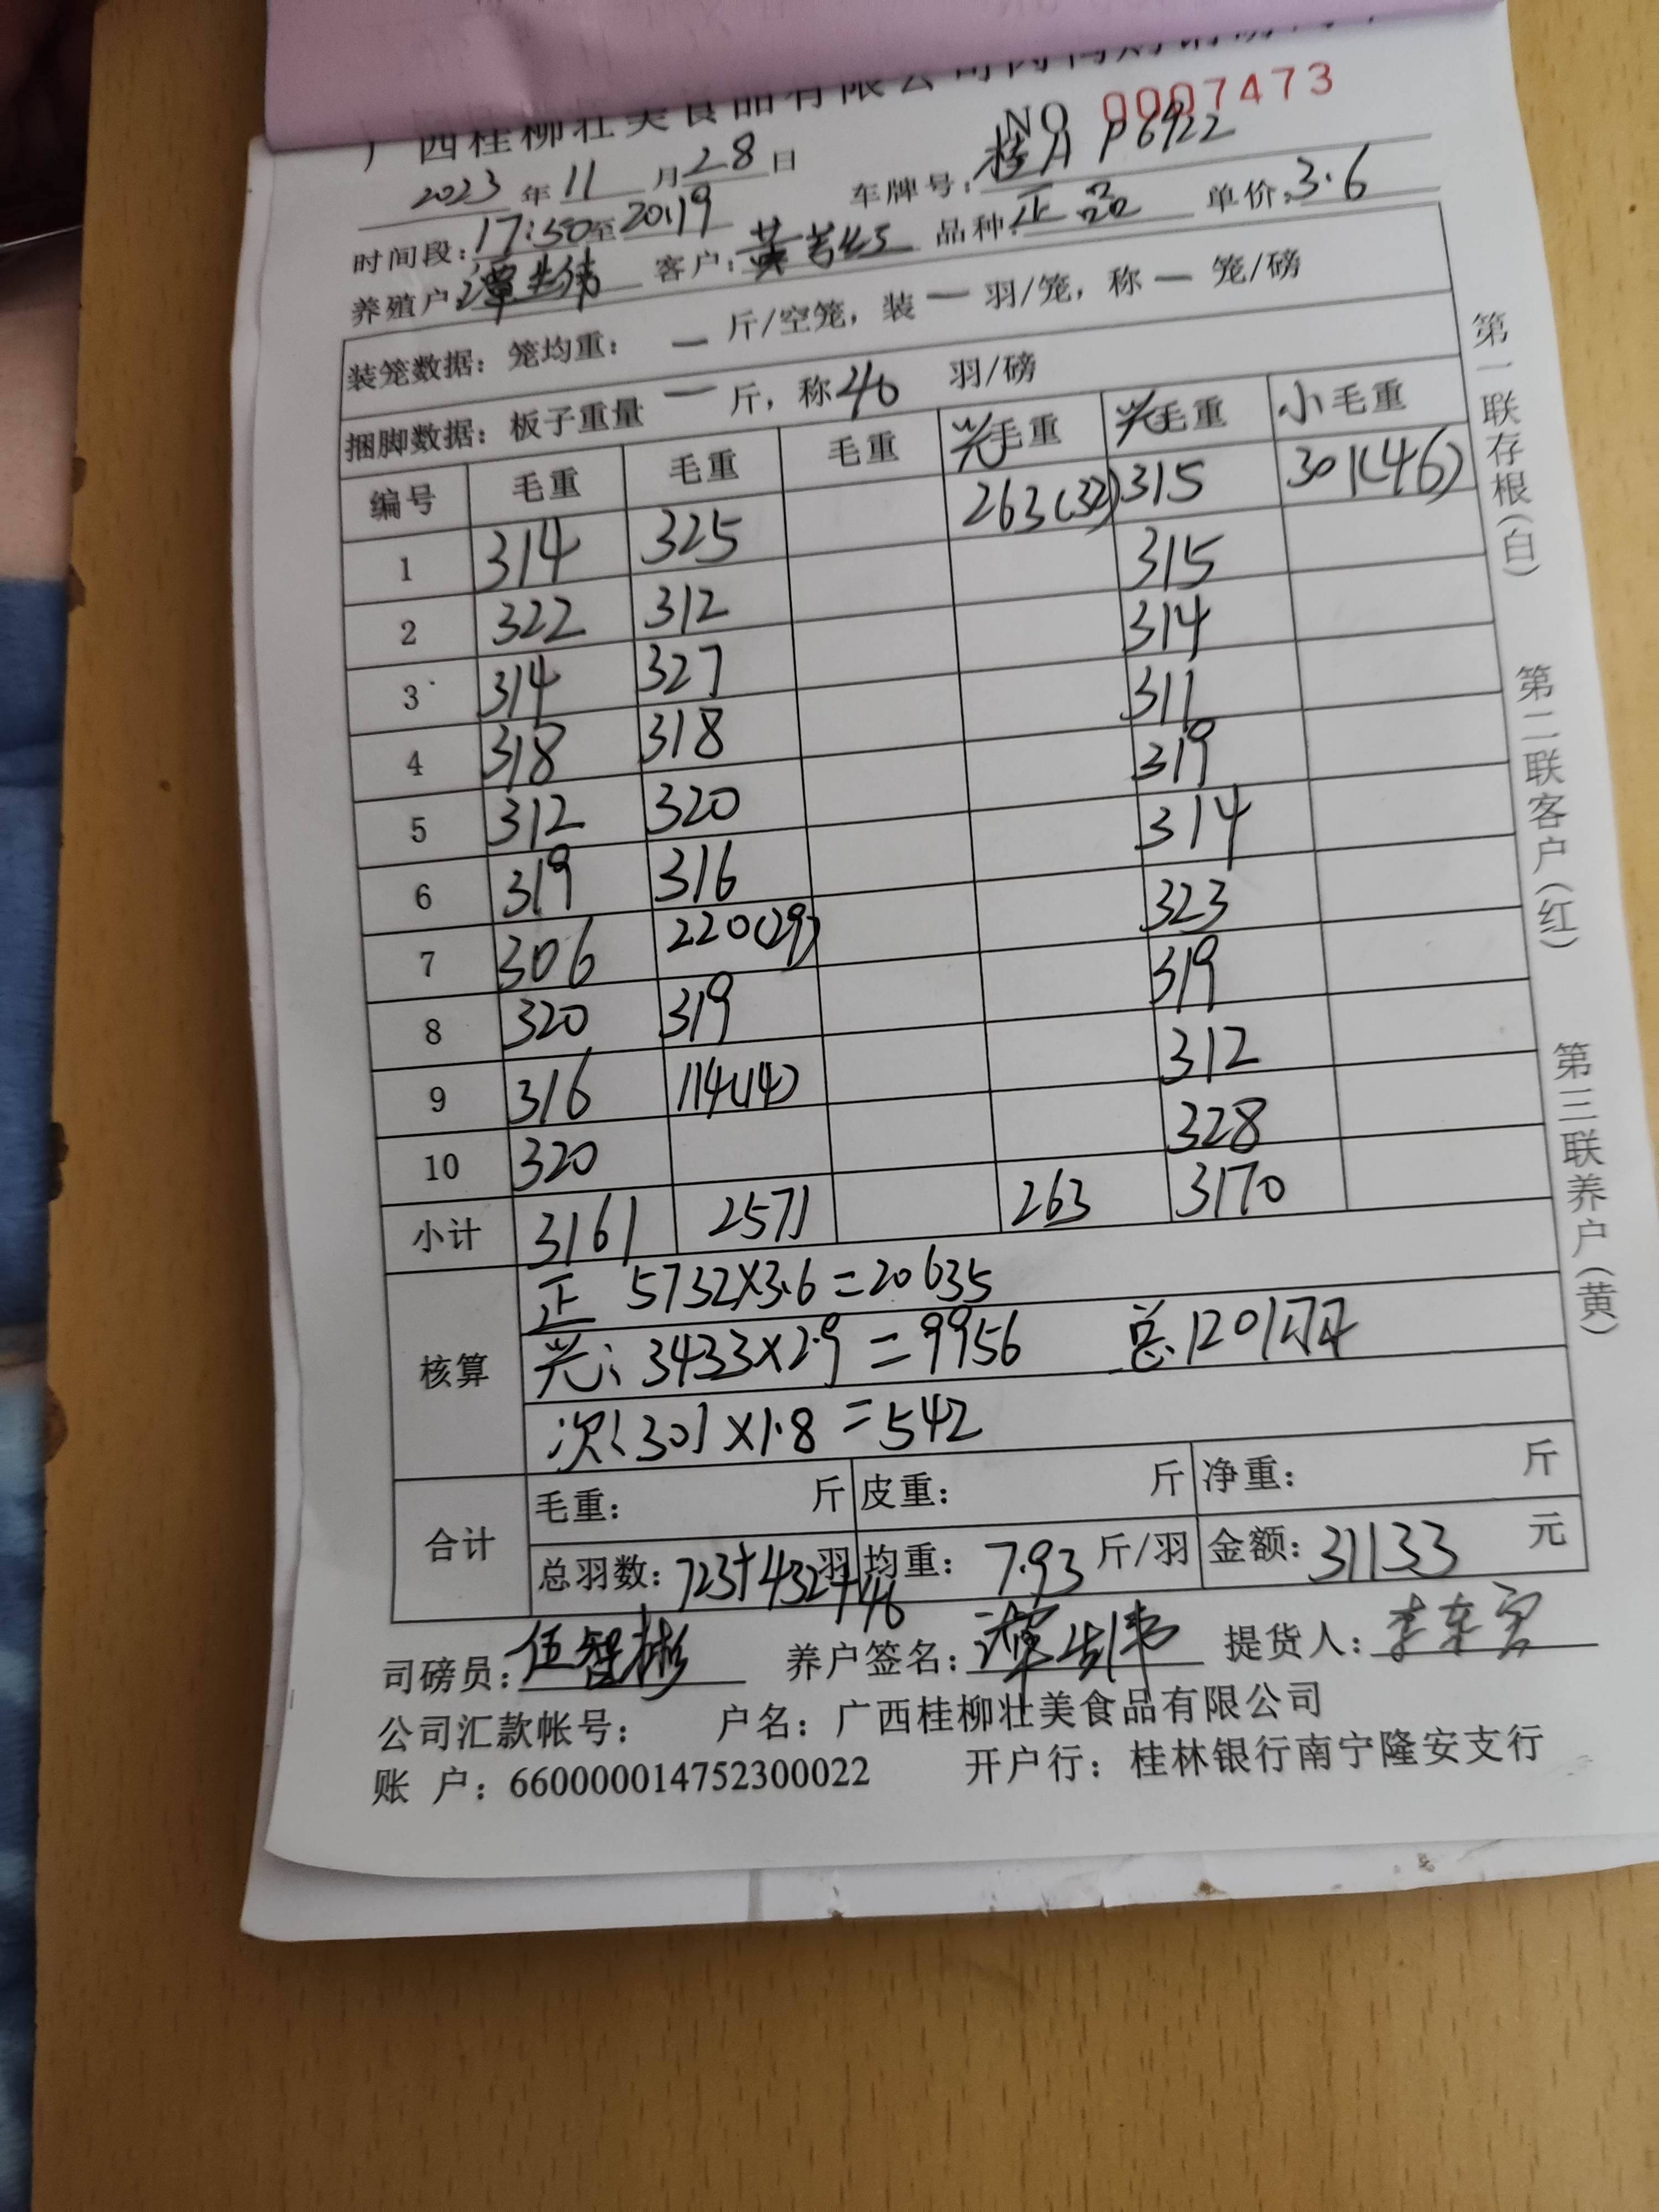 广西桂柳壮美食品有限公司
NO 0007473
2023 年 11 月 28 日 车牌号: 桂A P6922
时间段: 17:50 至 20:19 品种: 正品 单价: 3.6
养殖户: 客户: 黄
装笼数据: 笼均重: — 斤/空笼, 装 — 羽/笼, 称 — 笼/磅
捆脚数据: 板子重量 — 斤, 称 40 羽/磅
编号 毛重 毛重 毛重 兴毛重 兴毛重 小毛重
263(32) 315 301(46)
1 314 325 315
2 322 312 314
3 314 327 311
4 318 318 319
5 312 320 314
6 319 316 323
7 306 220(29) 319
8 320 319 312
9 316 114(14) 328
10 320
小计 3161 2571 263 3170
核算 正 5732×3.6=20635
兴: 3433×2.9=9956 总 1201羽
次: 301×1.8=542
合计 毛重: 斤 皮重: 斤 净重: 斤
总羽数: 723+432+46 羽 均重: 7.93 斤/羽 金额: 31133 元
司磅员: 伍智彬 养户签名: 提货人: 李东
公司汇款帐号: 户名: 广西桂柳壮美食品有限公司
账 户: 660000014752300022 开户行: 桂林银行南宁隆安支行
第一联存根(白) 第二联客户(红) 第三联养户(黄)